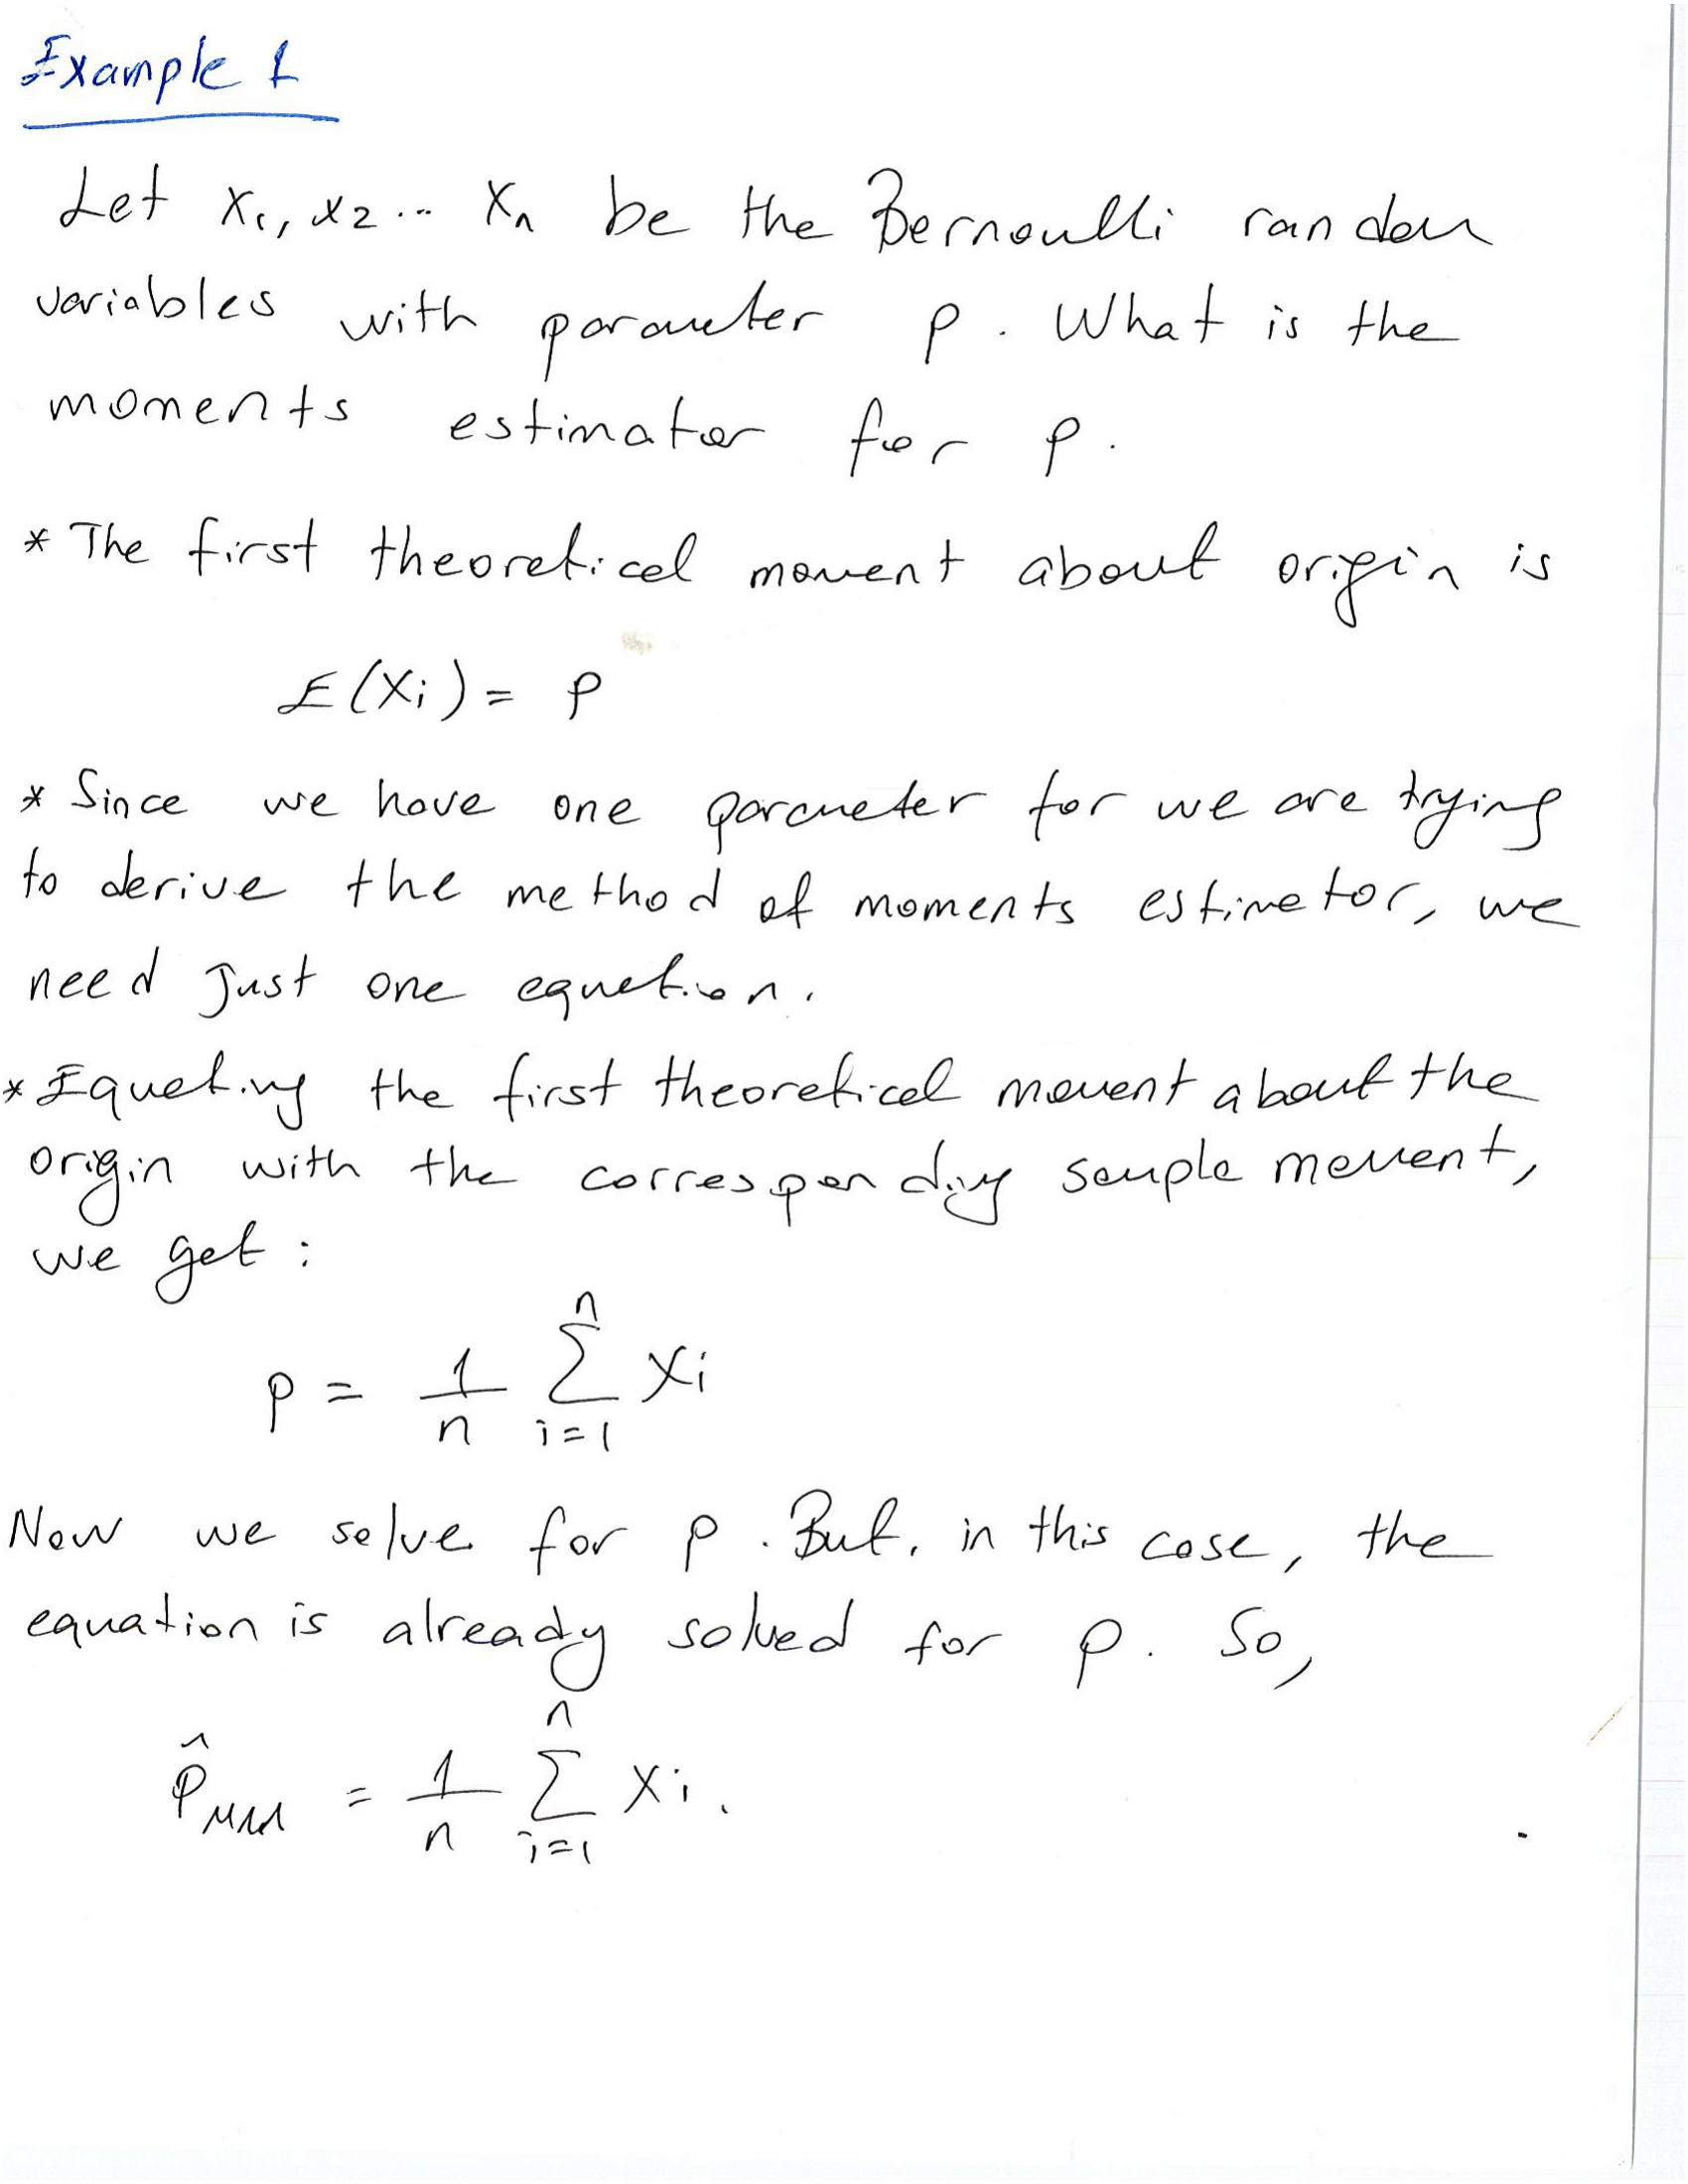 Example 1
Let X1, X2... Xn be the Bernoulli random
variables with parameter p. What is the
moments estimator for p.
* The first theoretical moment about origin is
E(Xi) = p
* Since we have one parameter for we are trying
to derive the method of moments estimator, we
need just one equation.
* Equating the first theoretical moment about the
origin with the corresponding sample moment,
we get:
p = 1/n ∑_{i=1}^{n} Xi
Now we solve for p. But, in this case, the
equation is already solved for p. So,
p̂_MM = 1/n ∑_{i=1}^{n} Xi.